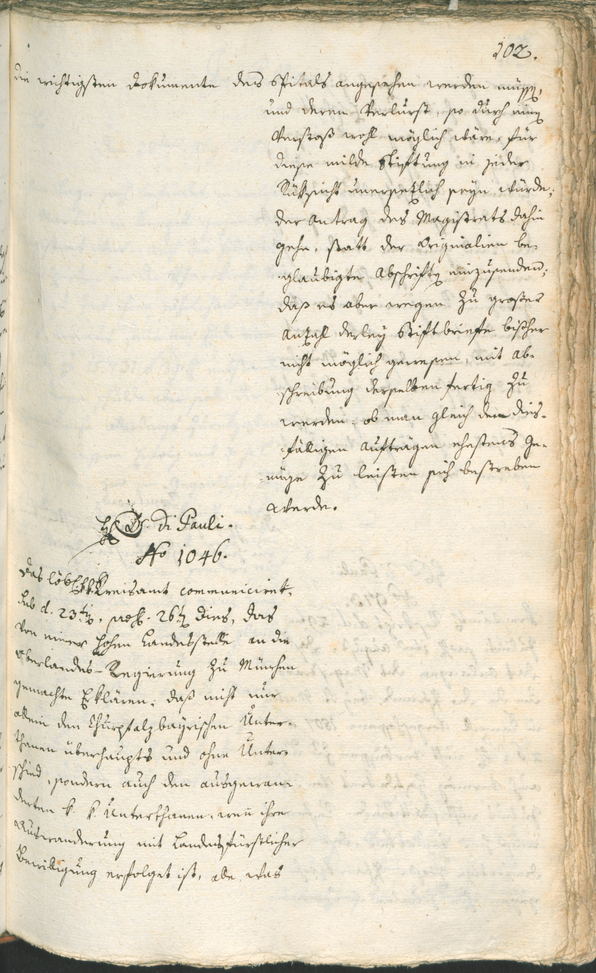 102.
die wichtigsten Dokumente des Spitals angesehen werden müssen,
und deren Verlurst, so durch einen
Verstoß wohl möglich wäre, für
diese milde Stiftung in jeder
Rücksicht unersetzlich seyn würde;
der Antrag des Magistrats dahin
gehe, statt der Originalien be-
glaubigte Abschriften einzusenden;
daß es aber wegen zu großer
Anzahl derley Stiftbriefe bisher
nicht möglich gewesen, mit Ab-
schreibung derselben fertig zu
werden, ob man gleich den dies-
fälligen Aufträgen ehestens Ge-
nüge zu leisten sich bestreben
werde.
di Pauli.
No 1046.
Das löbl. Kreisamt communicirt,
sub d. 23ten, 26ten dies, das
von einer hohen Landesstelle an die
Oberlandes-Regierung zu München
gemachte Erklären: daß nicht nur
allein den Churpfalzbayrischen Unter-
thanen überhaupts und ohne Unter-
schied, sondern auch den ausgewan-
derten k. k. Unterthanen, wenn ihre
Auswanderung mit Landesfürstlicher
Bewilligung erfolget ist, alle was